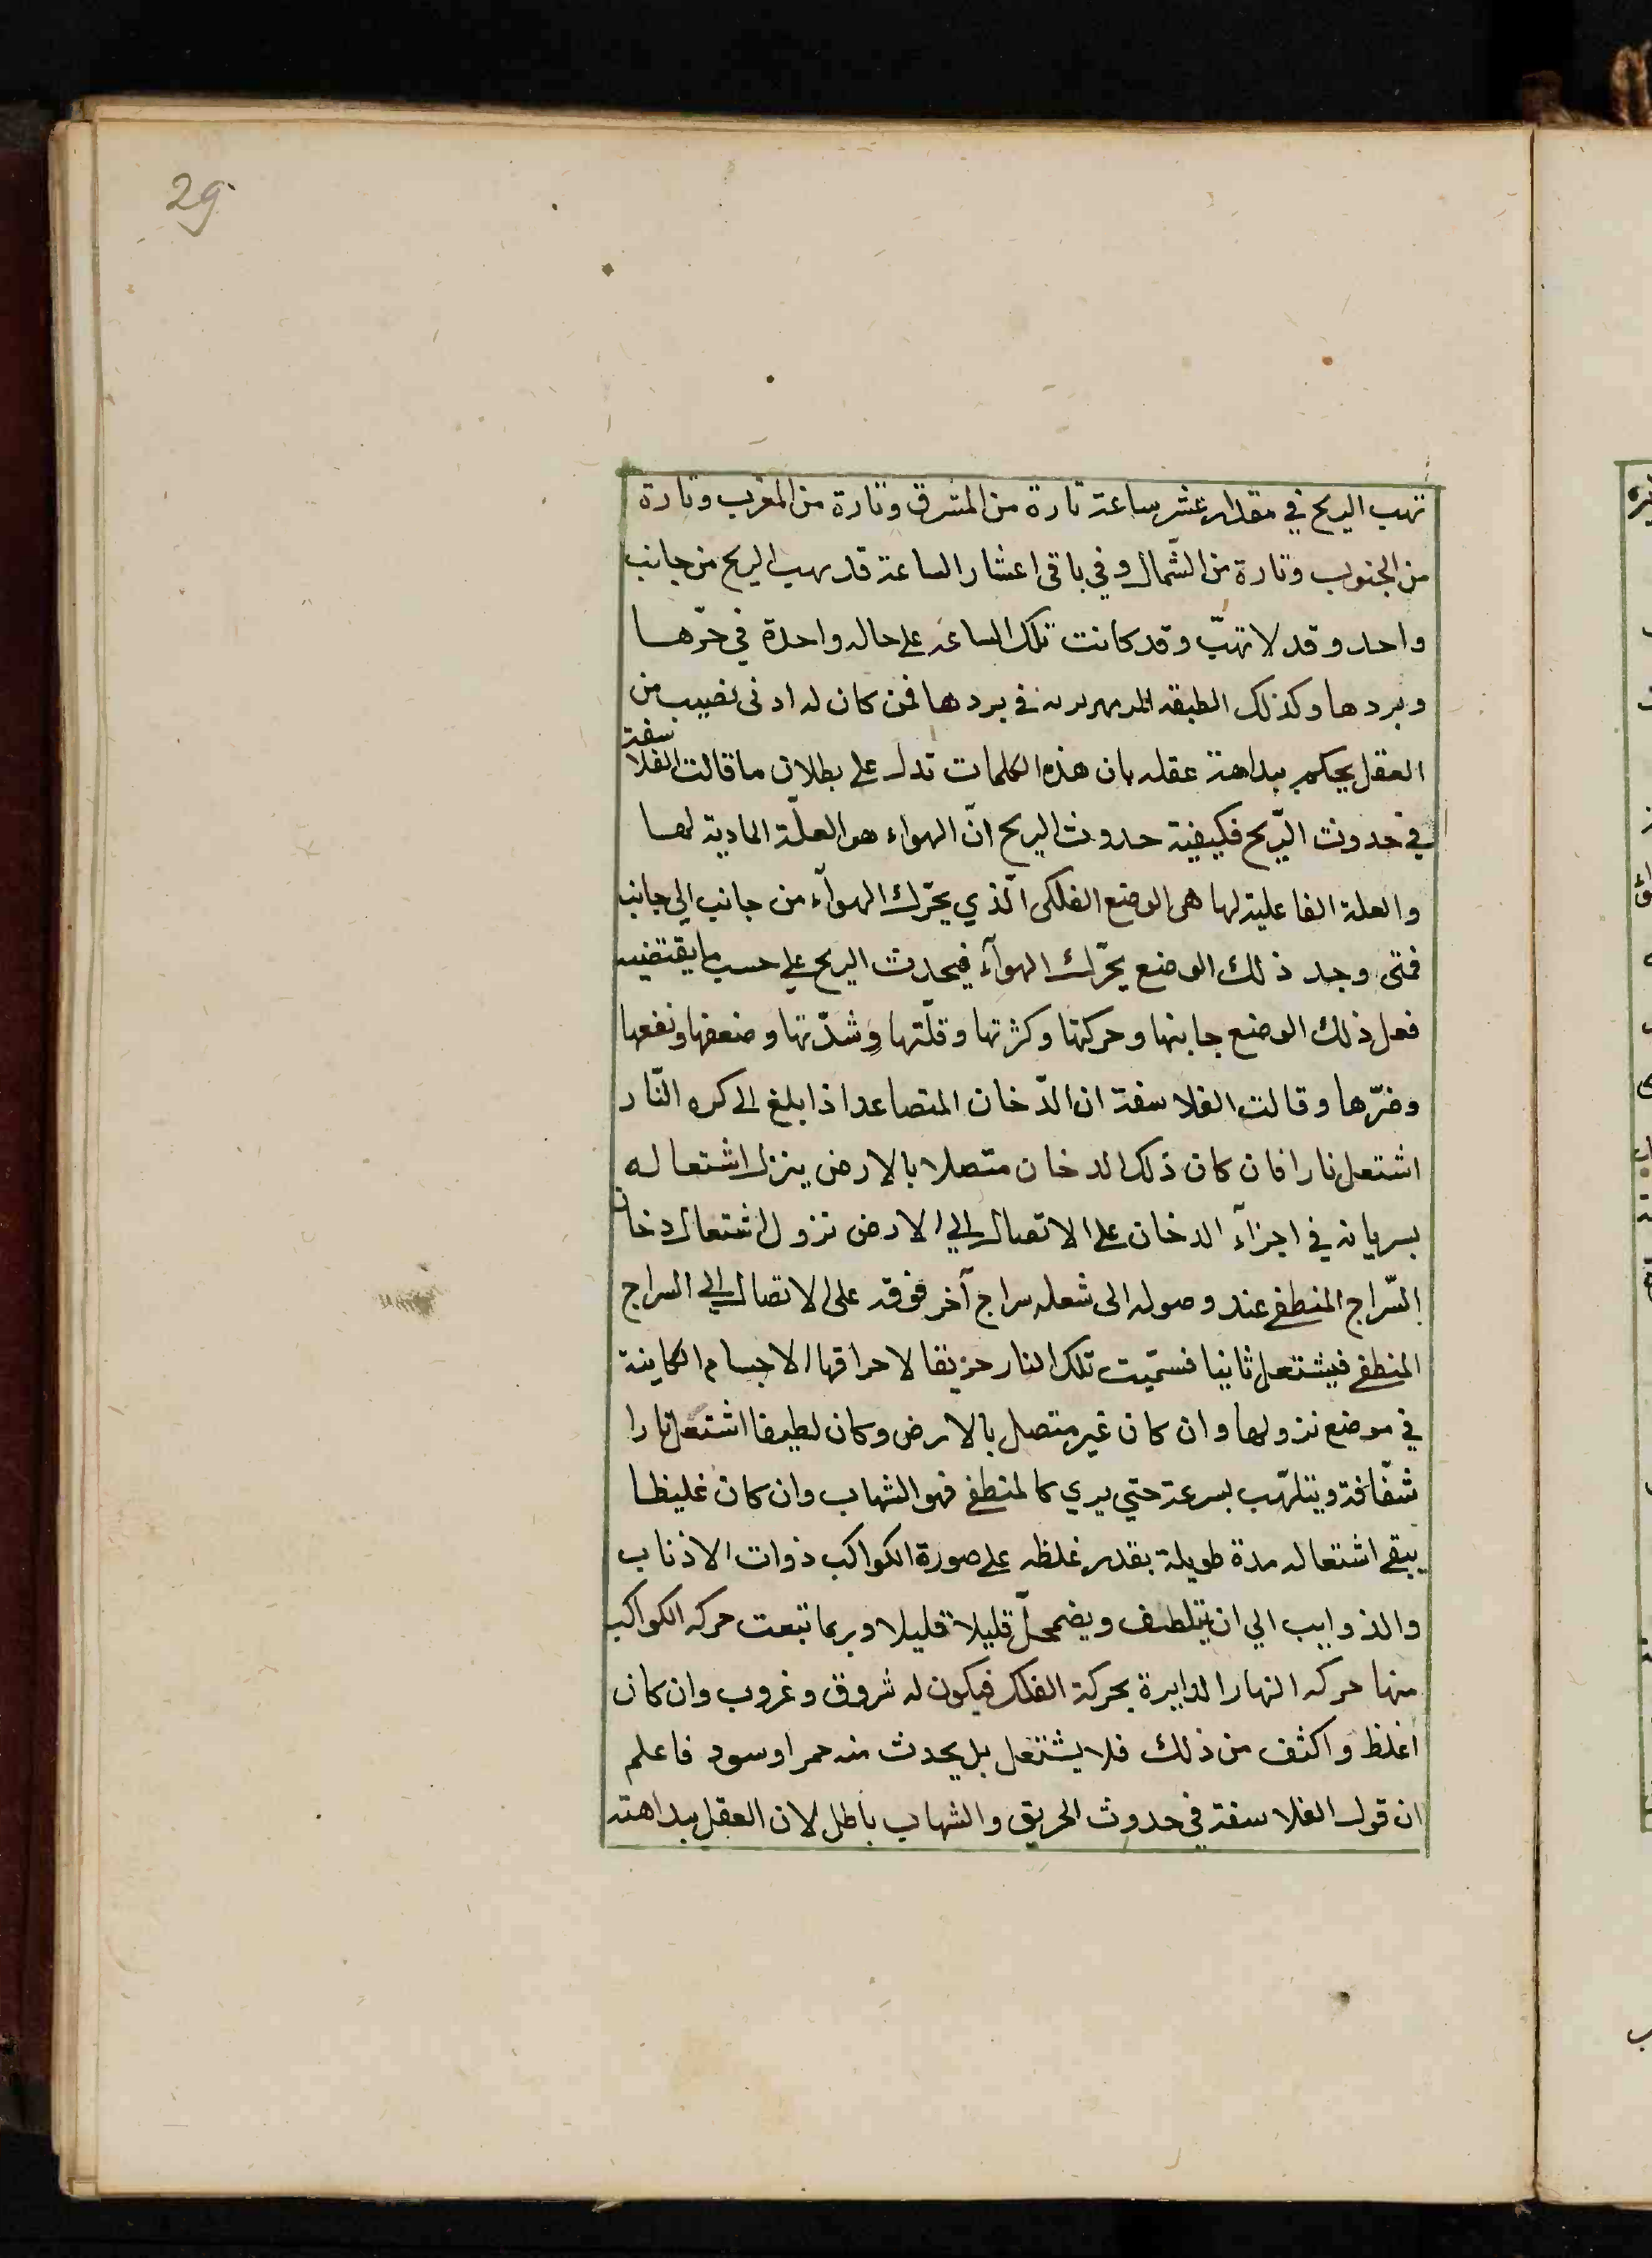 29
تهب الريح في مقدار عشر ساعة تارة من المشرق وتارة من المغرب وتارة
من الجنوب وتارة من الشّمال وفي باقى اعشار الساعة قد يهب الريح من جانب
واحد وقد لا تهبّ وقد كانت تلك الساعه على حاله واحدة في حرّها
وبردها وكذلك الطبقه الزمهريريه في بردها فمن كان له ادنى نصيب من
العقل يحكم ببداهة عقله بان هذه الكلمات تدل على بطلان ما قالت الفلاسفة
في حدوث الرّيح فكيفية حدوث الريح انّ الهواء هو العلّة المادية لها
والعلة الفاعلية لها هى الوضع الفلكى الّذي يحرّك الهوآء من جانب الي جانب
فمتى وجد ذلك الوضع يحرّك الهوآء فيحدث الريح على حسب ما يقتضيه
فعل ذلك الوضع جانبها وحركتها وكثرتها وقلّتها وشدّتها وضعفها ونفعها
وضرّها وقالت الفلاسفة ان الدّخان المتصاعد اذا بلغ الى كره النّار
اشتعل نارا فان كان ذلك الدخان متصلا بالارض ينزل اشتعاله
بسريانه في اجزآء الدخان على الاتصال الي الارض نزول اشتعال دخان
السّراج المنطفى عند وصوله الى شعله سراج آخر فوقه على الاتصال الي السراج
المنطفى فيشتعل ثانيا فسمّيت تلك النار حريقا لاحراقها الاجسام الكاينة
في موضع نزولها وان كان غير متصل بالارض وكان لطيفا اشتعل نارا
شفّافة ويتلهّب بسرعة حتي يري كالمنطفى فهو الشهاب وان كان غليظا
يبقى اشتعاله مدة طويلة بقدر غلظه على صورة الكواكب ذوات الاذناب
والذوايب الي ان يتلطف ويضمحلّ قليلا قليلا وربما تبعت حركه الكواكب
منها حركه النهار الدايرة بحركة الفلك فيكون له شروق وغروب وان كان
اغلظ واكثف من ذلك فلا يشتعل بل يحدث منه حمر او سود فاعلم
ان قول الفلاسفة في حدوث الحريق والشهاب باطل لان العقل ببداهته